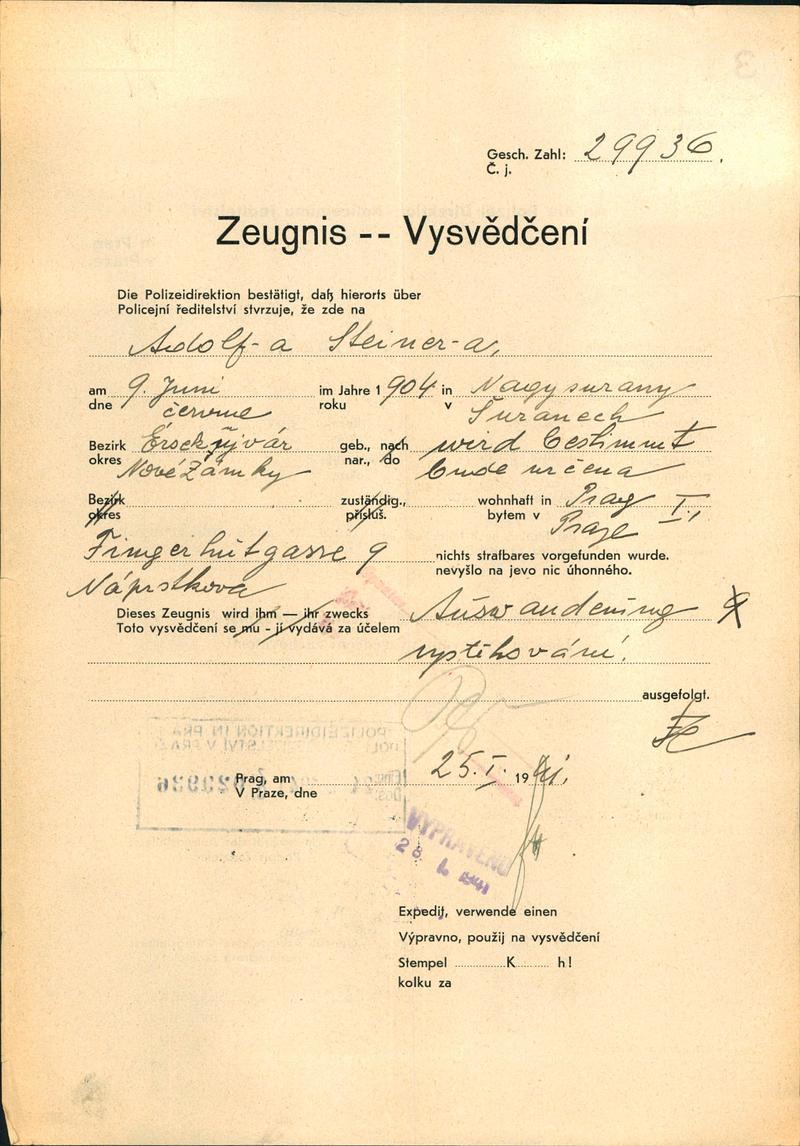 Gesch. Zahl: 29936.
Č. j.
Zeugnis -- Vysvědčení
Die Polizeidirektion bestätigt, daß hierorts über
Policejní ředitelství stvrzuje, že zde na
Adolf-a Steiner-a,
am 9. Juni im Jahre 1904 in Nagysurany
dne června roku v Šuranech
Bezirk Érsekújvár geb., nach wird bestimmt
okres Nové Zámky nar., do bude určena
Bezirk zuständig., wohnhaft in Prag I.,
okres přísluš. bytem v Praze
Fingerhutgasse 9 nichts strafbares vorgefunden wurde.
Náprstkova nevyšlo na jevo nic úhonného.
Dieses Zeugnis wird ihm — ihr zwecks Auswanderung
Toto vysvědčení se mu - jí vydává za účelem
vystěhování.
ausgefolgt.
Prag, am 25. I. 1941.
V Praze, dne
VYPRAVENO
28 1941
Expedit, verwende einen
Výpravno, použij na vysvědčení
Stempel K h!
kolku za